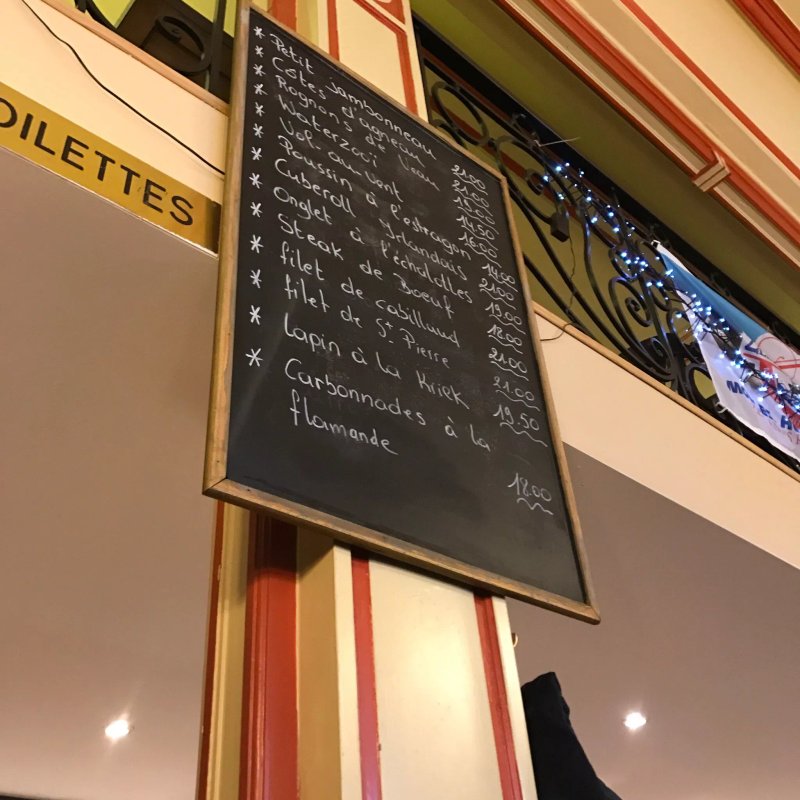 OILETTES
* Petit jambonneau 21.00
* Côtes d'agneau 21.00
* Rognons de veau 19.00
* Waterzooi 14.50
* Vol-au-vent 16.00
* Poussin à l'estragon 14.00
* Cuberoll Yrlandais 21.00
* Onglet à l'échalottes 19.00
* Steak de Boeuf 18.00
* filet de cabillaud 21.00
* filet de St Pierre 21.00
* Lapin à la Kriek 19.50
* Carbonnades à la
flamande 18.00